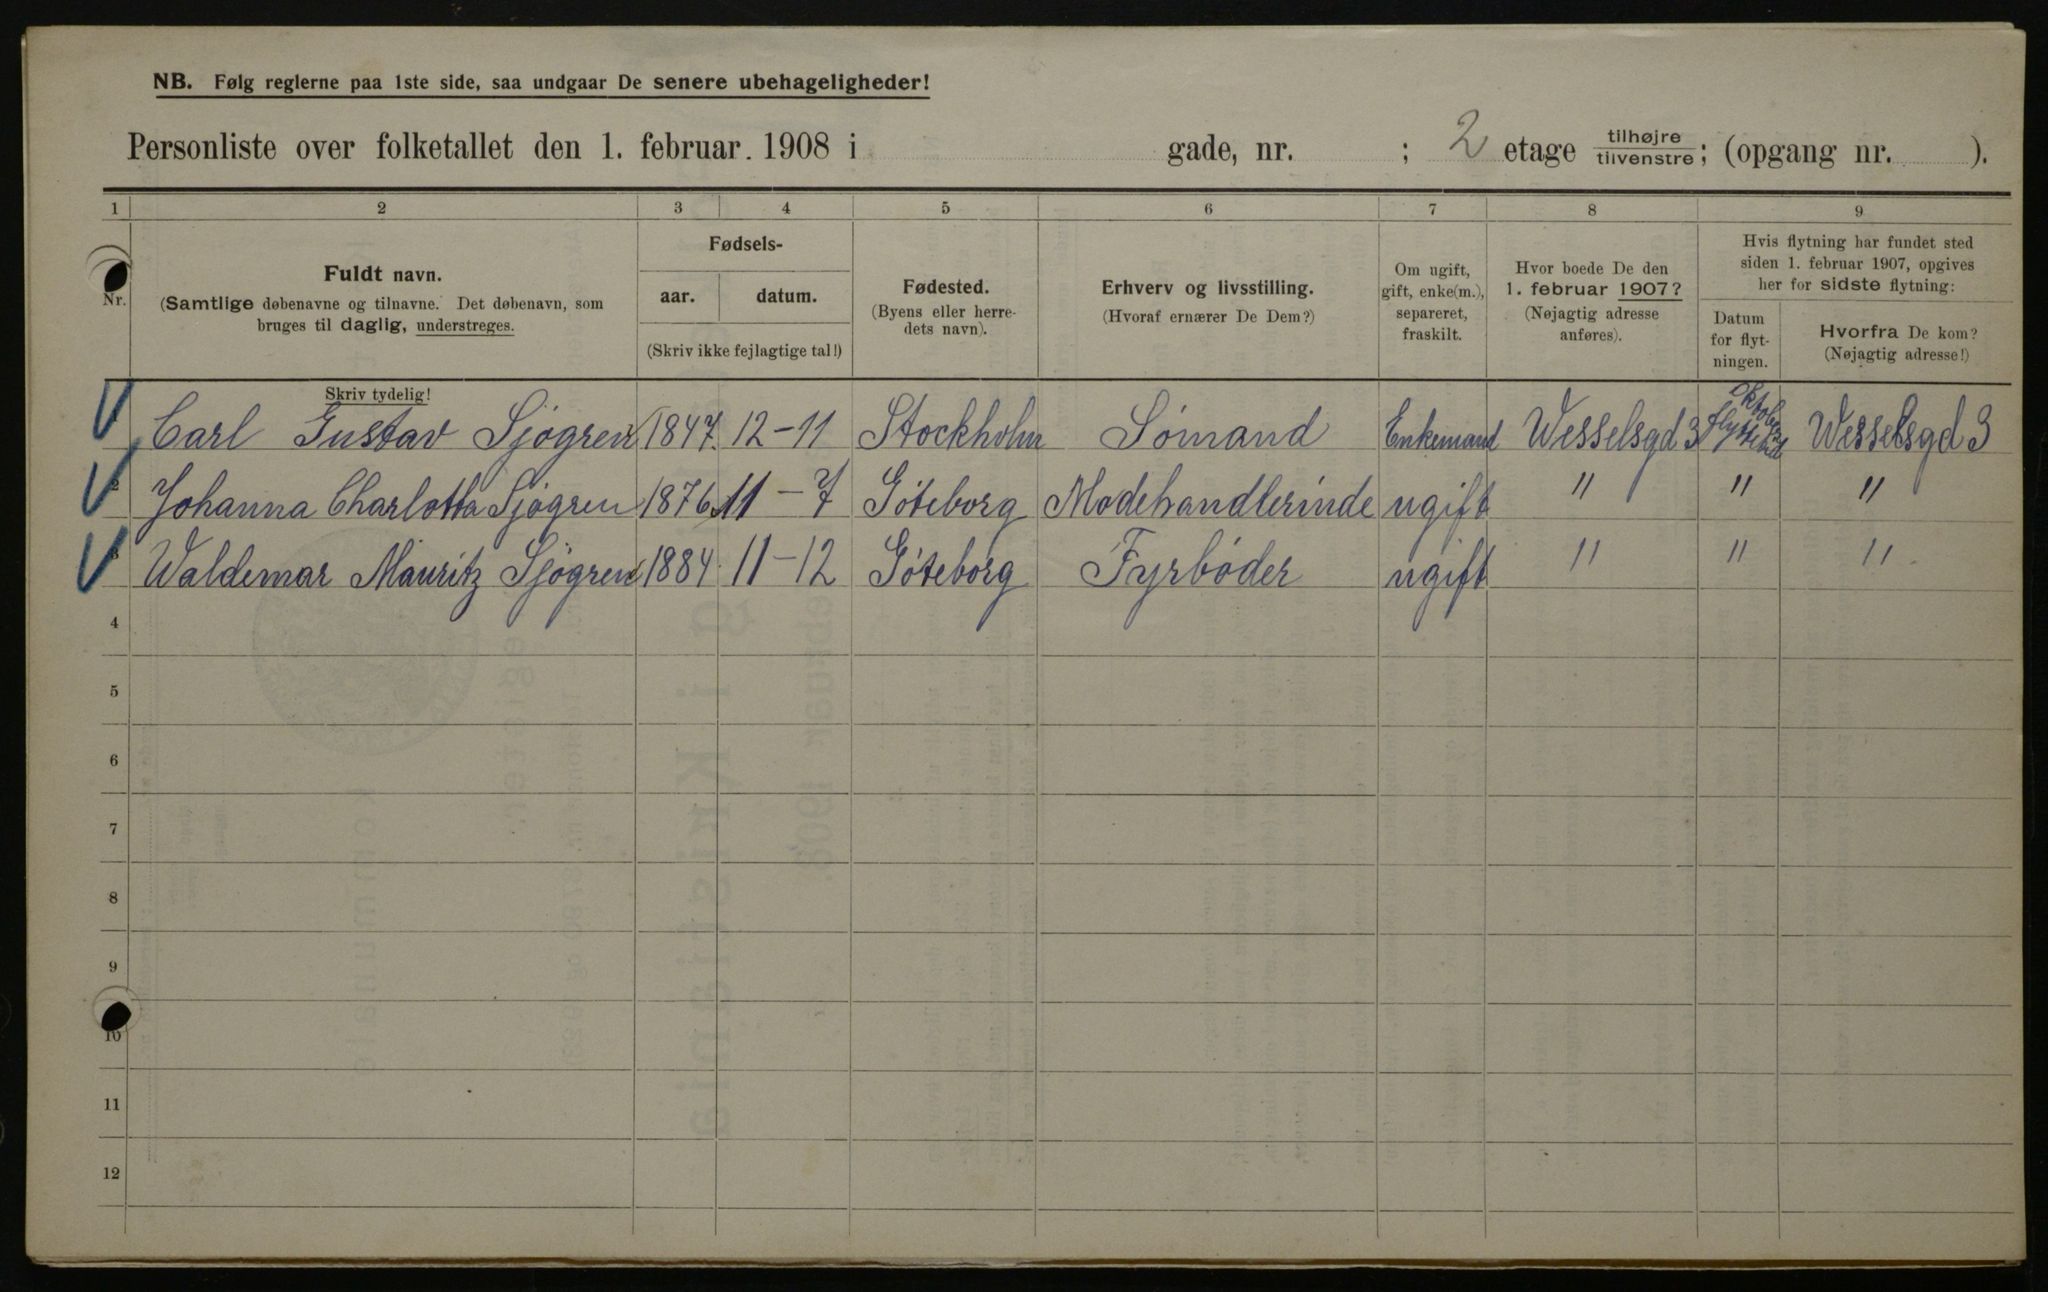 NB. Følg reglerne paa 1ste side, saa undgaar De senere ubehageligheder!
Personliste over folketallet den 1. februar 1908 i gade, nr. ; 2 etage tilhøjre/tilvenstre; (opgang nr. ).
1 2 3 4 5 6 7 8 9
Nr.
Fuldt navn.
(Samtlige døbenavne og tilnavne. Det døbenavn, som
bruges til daglig, understreges.
Fødsels-
aar. datum.
(Skriv ikke fejlagtige tal!)
Fødested.
(Byens eller herre-
dets navn).
Erhverv og livsstilling.
(Hvoraf ernærer De Dem?)
Om ugift,
gift, enke(m.),
separeret,
fraskilt.
Hvor boede De den
1. februar 1907?
(Nøjagtig adresse
anføres).
Hvis flytning har fundet sted
siden 1. februar 1907, opgives
her for sidste flytning:
Datum
for flyt-
ningen.
Hvorfra De kom?
(Nøjagtig adresse!)
Skriv tydelig!
1 Carl Gustav Sjögren 1847. 12-11 Stockholm Sömand Enkemand Wesselsgd 3 Oktober Flyttetid Wesselsgd 3
2 Johanna Charlotta Sjögren 1876 11-7 Göteborg Modehandlerinde ugift " " "
3 Waldemar Mauritz Sjögren 1884 11-12 Göteborg Fyrböder ugift " " "
4
5
6
7
8
9
10
11
12